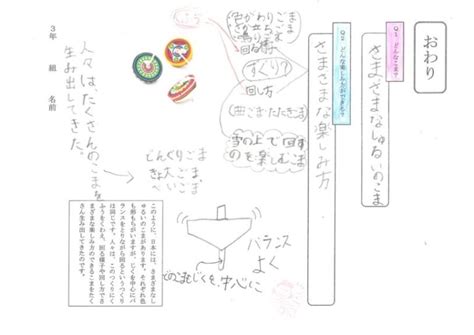 おわり
Q1 どんなこまで
さまざまなしゅるいのこま
Q2 どんな楽しみができるで
さまざまな楽しみ方
色がわりごま
鳴りごま
回る
つくり?
回し方
(曲ごま・たたきごま)
雪の上で回す
のを楽しむこま
どんぐりごま
大ごま
べいごま
バランス
よく
どのこまもじくを中心に
人々は、たくさんのこまを
生み出してきた。
3年 組 名前
このように、日本には、さまざまなし
ゅるいのこまがあります。それぞれ色
も形もちがいますが、じくを中心にバ
ランスをとりながら回るというつくり
は同じです。人々は、このつくりにく
ふうをくわえ、回る様子や回し方でさ
まざまな楽しみ方のできるこまをたく
さん生み出してきたのです。